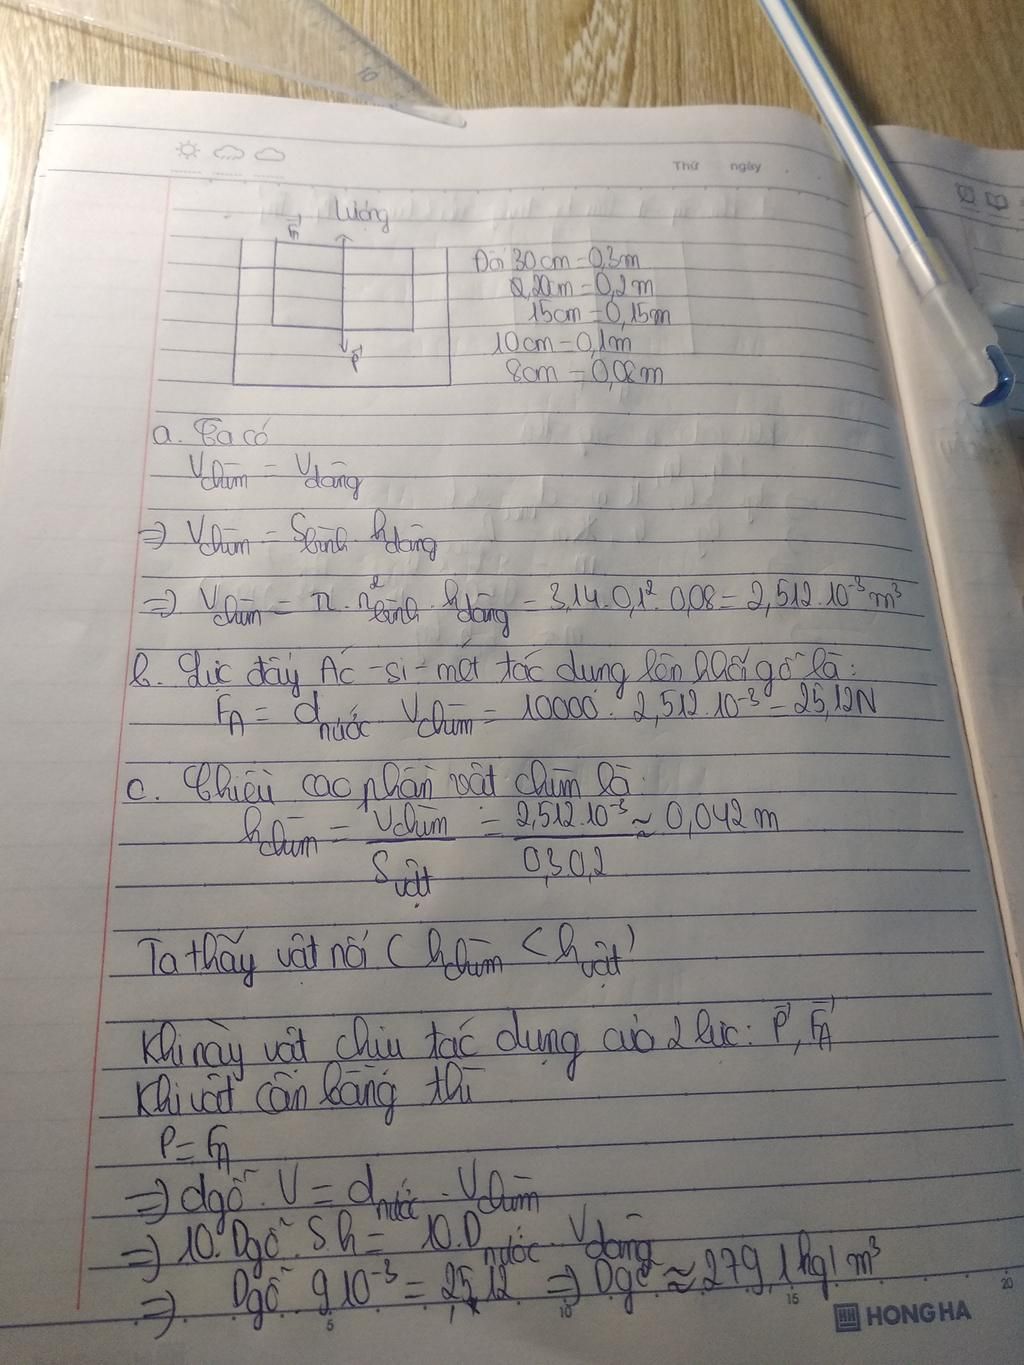 10
Thứ ngày
Lượng
F_A
Đổi 30cm = 0,3m
20cm = 0,2m
15cm = 0,15m
10cm = 0,1m
8cm = 0,08m
P
a. Ta có
V_chìm = V_dâng
=> V_chìm = S_bình . h_dâng
=> V_chìm = π . r²_bình . h_dâng = 3,14 . 0,1² . 0,08 = 2,512 . 10⁻³ m³
b. Lực đẩy Ác-si-mét tác dụng lên khối gỗ là:
F_A = d_nước . V_chìm = 10000 . 2,512 . 10⁻³ = 25,12N
c. Chiều cao phần vật chìm là
h_chìm = V_chìm / S_vật = 2,512 . 10⁻³ / 0,3.0,2 ≈ 0,042 m
Ta thấy vật nổi (h_chìm < h_vật)
Khi này vật chịu tác dụng của 2 lực: P, F_A
Khi vật cân bằng thì
P = F_A
=> dgỗ . V = d_nước . V_chìm
=> 10. Dgỗ . S.h = 10.D_nước . V_dâng
=> Dgỗ 9 10⁻³ = 2,512 => Dgỗ ≈ 279,1 kg/m³
5 10 15 20
HH HONG HA